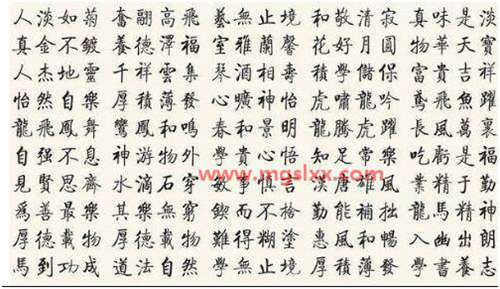 人淡如菊 奮翮高飛 藝無止境 和敬清寂 真味是淡
真金不鍍 養德澤福 室雅蘭馨 花好月圓 物華天寶
人杰地靈 千祥雲集 琴酒相壽 積學儲保 富貴吉祥
怡然自樂 厚積薄發 心曠神怡 虎嘯龍吟 鳶飛魚躍
龍飛鳳舞 鸞鳳和鳴 春和景明 龍騰虎躍 長風萬里
自强不息 神游物外 學貴心悟 知足常樂 吃虧是福
見賢思齊 水滴石穿 敏事慎言 漢唐雄風 業精于勤
爲善最樂 其樂無窮 鍥而不捨 勤能補拙 龍馬精神
厚德載物 厚德載物 難得糊塗 惠風和暢 入幽出朗
馬到功成 道法自然 學無止境 厚積薄發 學書養志
www.mgslxx.com